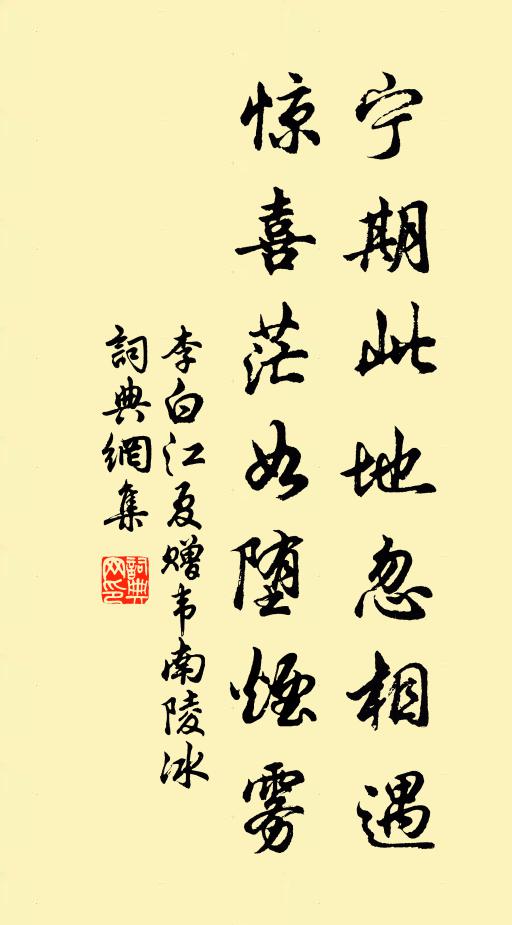 宁期此地忽相遇
惊喜茫如堕烟雾
李白江夏赠韦南陵冰
詞典網集
詞典网印